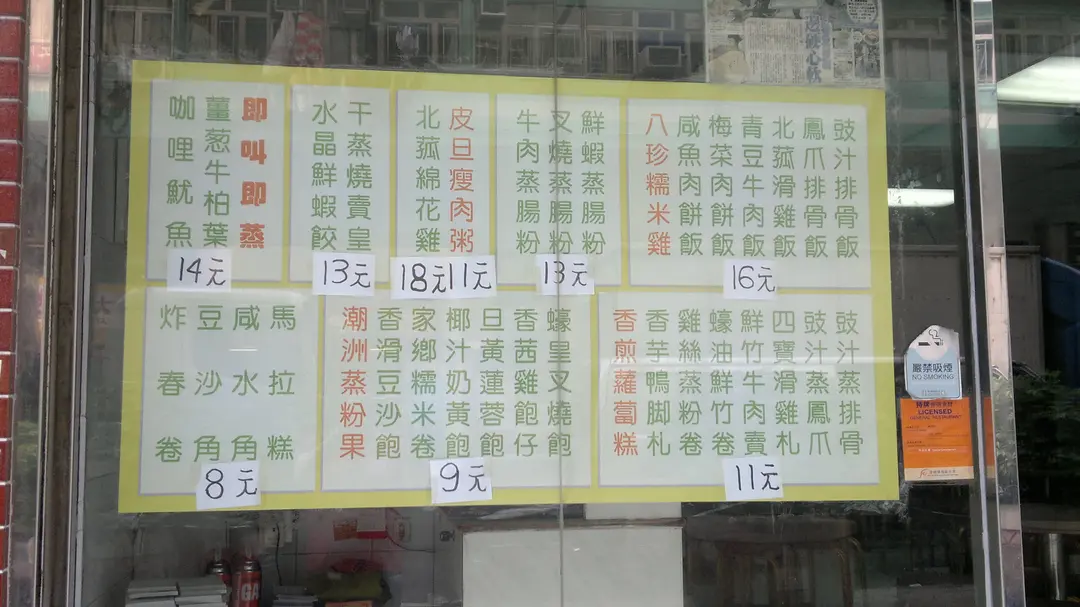 豉汁排骨飯
鳳爪排骨飯
北菰滑雞飯
青豆牛肉飯
梅菜肉餅飯
咸魚肉餅飯
八珍糯米雞
16元
鮮蝦蒸腸粉
叉燒蒸腸粉
牛肉蒸腸粉
13元
皮旦瘦肉粥
11元
北菰綿花雞
18元
干蒸燒賣皇
水晶鮮蝦餃
13元
即叫即蒸
薑葱牛柏葉
咖哩魷魚
14元
豉汁蒸排骨
豉汁蒸鳳爪
四寶滑雞札
鮮竹牛肉賣
蠔油鮮竹卷
雞絲蒸粉卷
香芋鴨脚札
香煎蘿蔔糕
11元
蠔皇叉燒飽
香茜雞飽仔
旦黃蓮蓉飽
椰汁奶黃飽
家鄉糯米卷
香滑豆沙飽
潮洲蒸粉果
9元
馬拉糕
咸水角
豆沙角
炸春卷
8元
嚴禁吸煙
NO SMOKING
LICENSED
GA